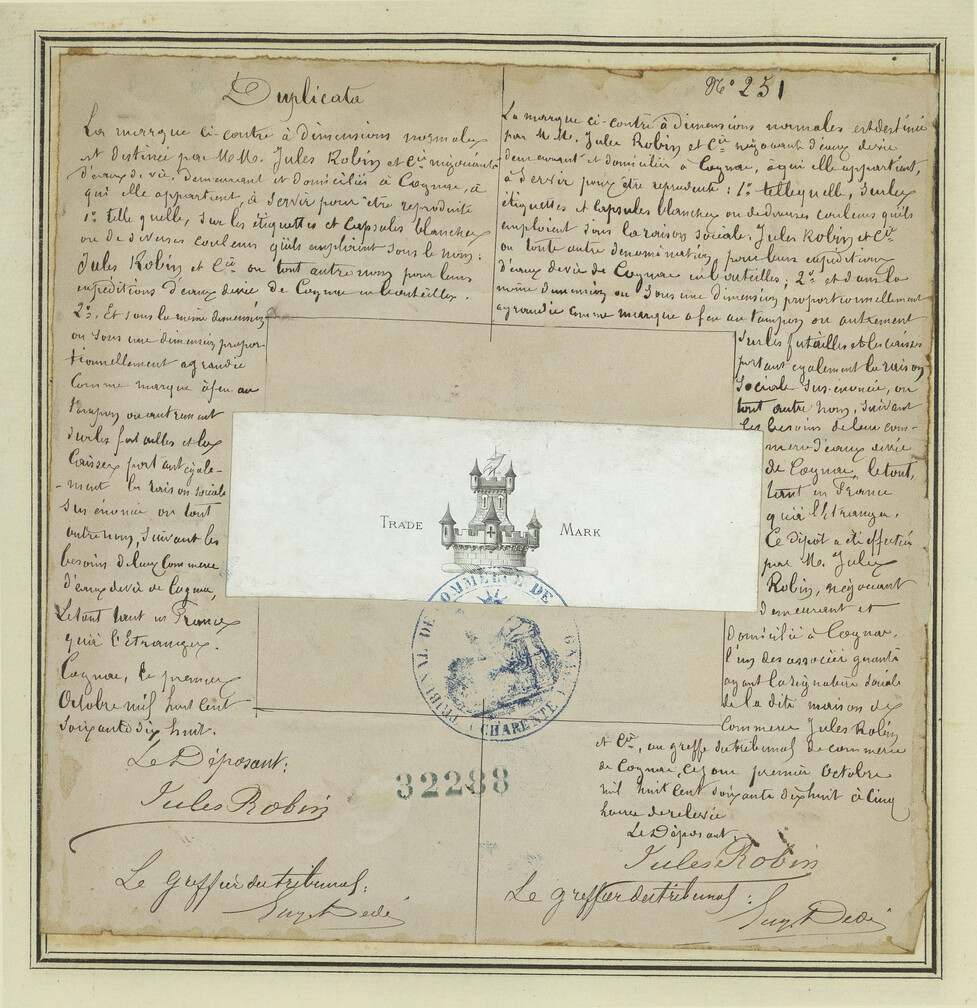 Duplicata
La marque ci-contre à dimensions normales
est destinée par M.M. Jules Robin et Cie négociants
d'eaux de vie, demeurant et domiciliés à Cognac, à
qui elle appartient, à servir pour être reproduite
1º telle quelle, sur les étiquettes et capsules blanches
ou de diverses couleurs qu'ils emploient sous le nom:
Jules Robin et Cie ou tout autre nom pour leurs
expéditions d'eaux de vie de Cognac en bouteilles.
2º. Et sous la même dimension
ou sous une dimension propor-
tionnellement agrandie
comme marque à feu au
tampon ou autrement
sur les futailles et les
caisses portant égale-
-ment la raison sociale
sus énoncée ou tout
autre nom, suivant les
besoins de leur commerce
d'eaux de vie de Cognac,
Le tout tant en France
qu'à l'Etranger.
Cognac, le premier
Octobre mil huit cent
soixante dix huit.
Le Déposant:
Jules Robin
Le greffier du tribunal:
Nº 251
La marque ci-contre à dimensions normales est destinée
par M.M. Jules Robin et Cie négociants d'eaux de vie
demeurant et domiciliés à Cognac, à qui elle appartient,
à servir pour être reproduite : 1º telle quelle, sur les
étiquettes et capsules blanches ou de diverses couleurs qu'ils
emploient sous la raison sociale: Jules Robin et Cie
ou toute autre dénomination, pour leurs expéditions
d'eaux de vie de Cognac en bouteilles; 2º et dans la
même dimension ou sous une dimension proportionnellement
agrandie comme marque à feu au tampon ou autrement
sur les futailles et les caisses
portant également la raison
sociale sus-énoncée, ou
tout autre nom, suivant
les besoins de leur com-
merce d'eaux de vie
de Cognac, le tout,
tant en France
qu'à l'Etranger.
Ce dépôt a été effectué
par M. Jules
Robin, négociant
demeurant et
domicilié à Cognac,
l'un des associés gérants
ayant la signature sociale
de la dite maison de
Commerce Jules Robin
et Cie, au greffe du tribunal de commerce
de Cognac, ce jour premier Octobre
mil huit cent soixante dix huit à cinq
heures de relevée
Le Déposant
Jules Robin
Le greffier du tribunal :
TRADE MARK
TRIBUNAL DE COMMERCE DE COGNAC
CHARENTE
32288